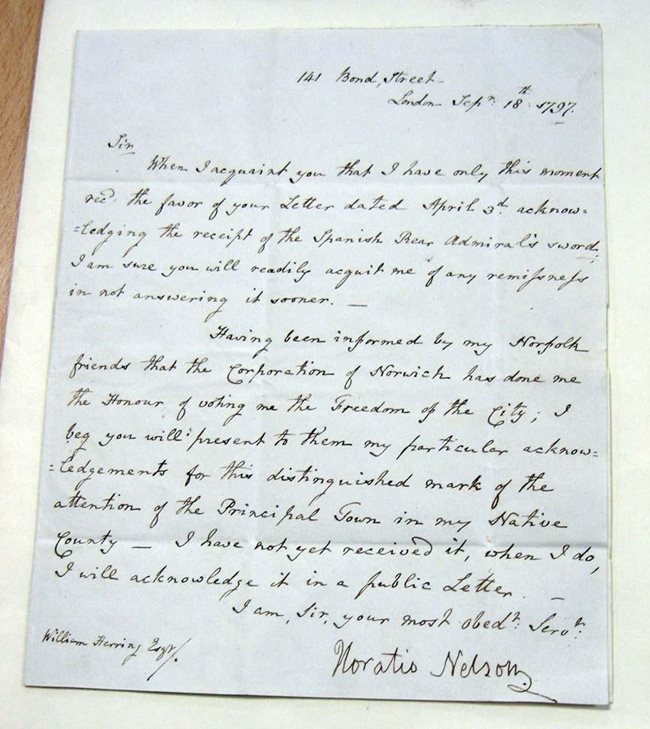 141 Bond Street
London Sepr. 18th. 1797.
Sir
When I acquaint you that I have only this moment
recd. the favor of your Letter dated April 3d. acknow=
=ledging the receipt of the Spanish Rear Admiral's sword;
I am sure you will readily acquit me of any remissness
in not answering it sooner. —
Having been informed by my Norfolk
friends that the Corporation of Norwich has done me
the Honour of voting me the Freedom of the City; I
beg you will present to them my particular acknow=
=ledgements for this distinguished mark of the
attention of the Principal Town in my Native
County — I have not yet received it, when I do,
I will acknowledge it in a public Letter. —
I am, Sir, your most obedt. Servt.
William Herring Esqr/.
Horatio Nelson.